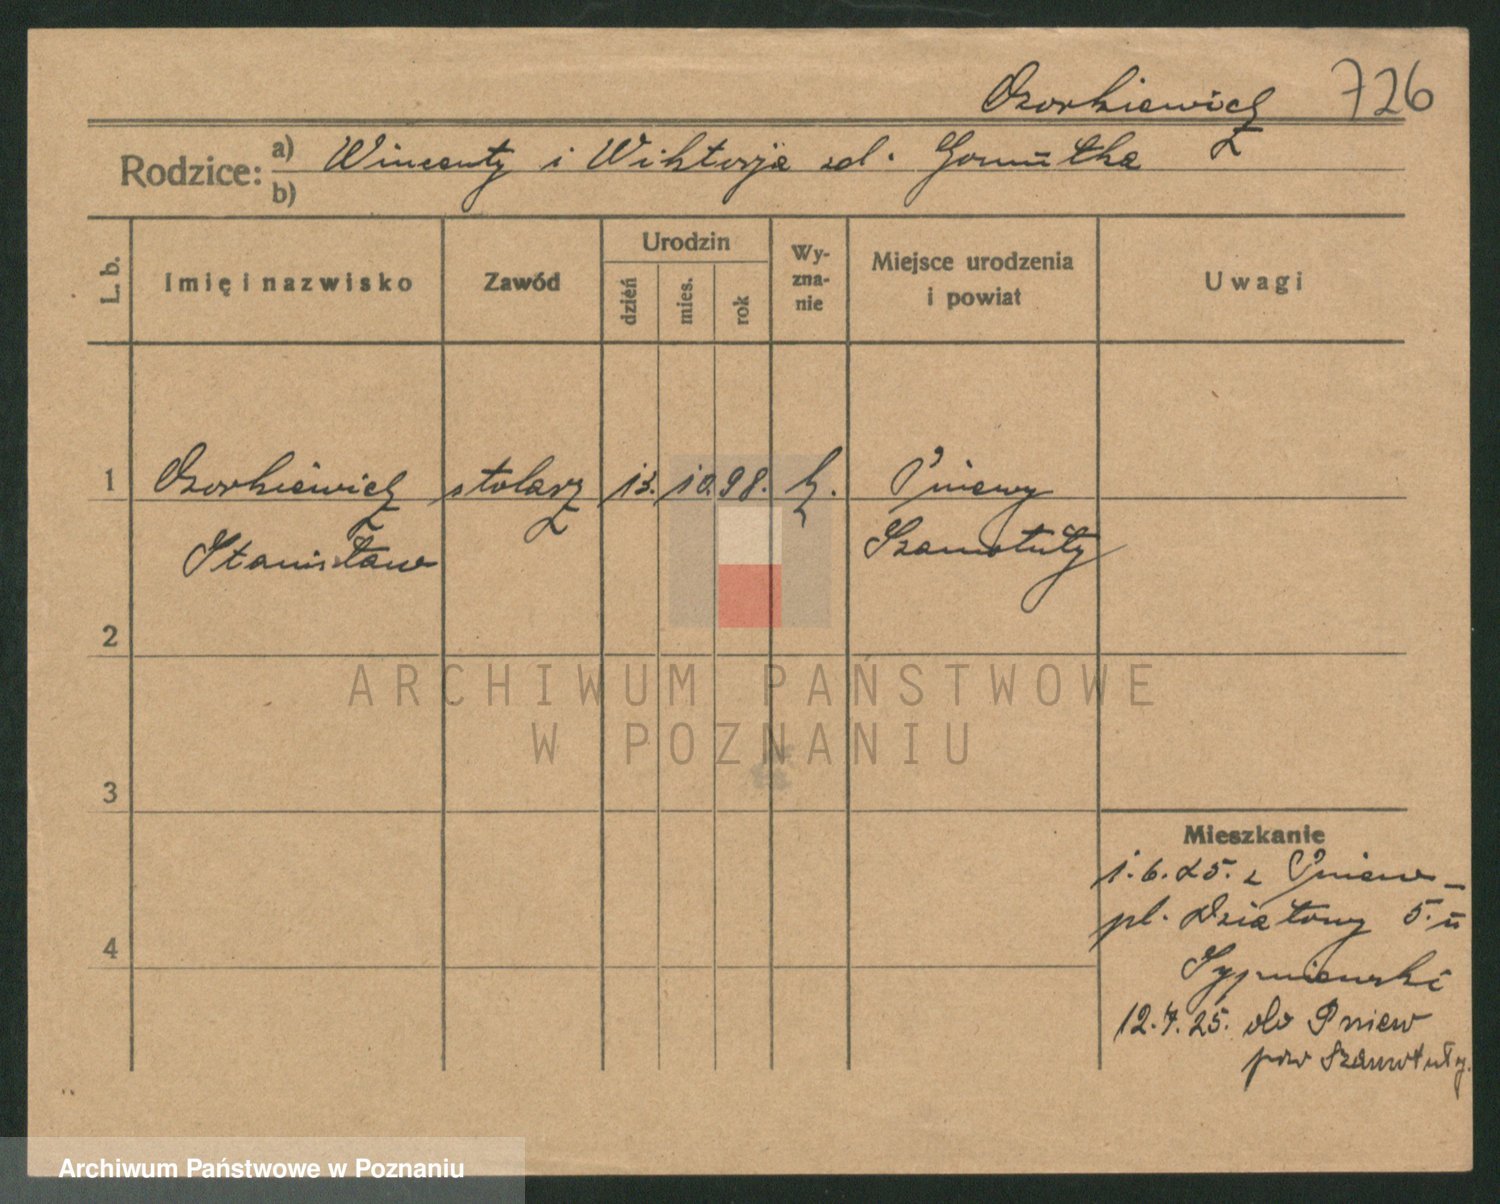 Ozorkiewicz 726
Rodzice: a) Wincenty i Wiktorja zd. Gomułka
b)
L. b. Imię i nazwisko Zawód Urodzin dzień mies. rok Wyznanie Miejsce urodzenia i powiat Uwagi
1 Ozorkiewicz stolarz 13. 10. 98. k. Pniewy
Stanisław Szamotuły
2
ARCHIWUM PAŃSTWOWE
W POZNANIU
3
Mieszkanie
1. 6. 25. z Pniew -
pl. Działowy 5. II
4
Sypniewski
12. 7. 25. do Pniew
pow Szamotuły.
Archiwum Państwowe w Poznaniu